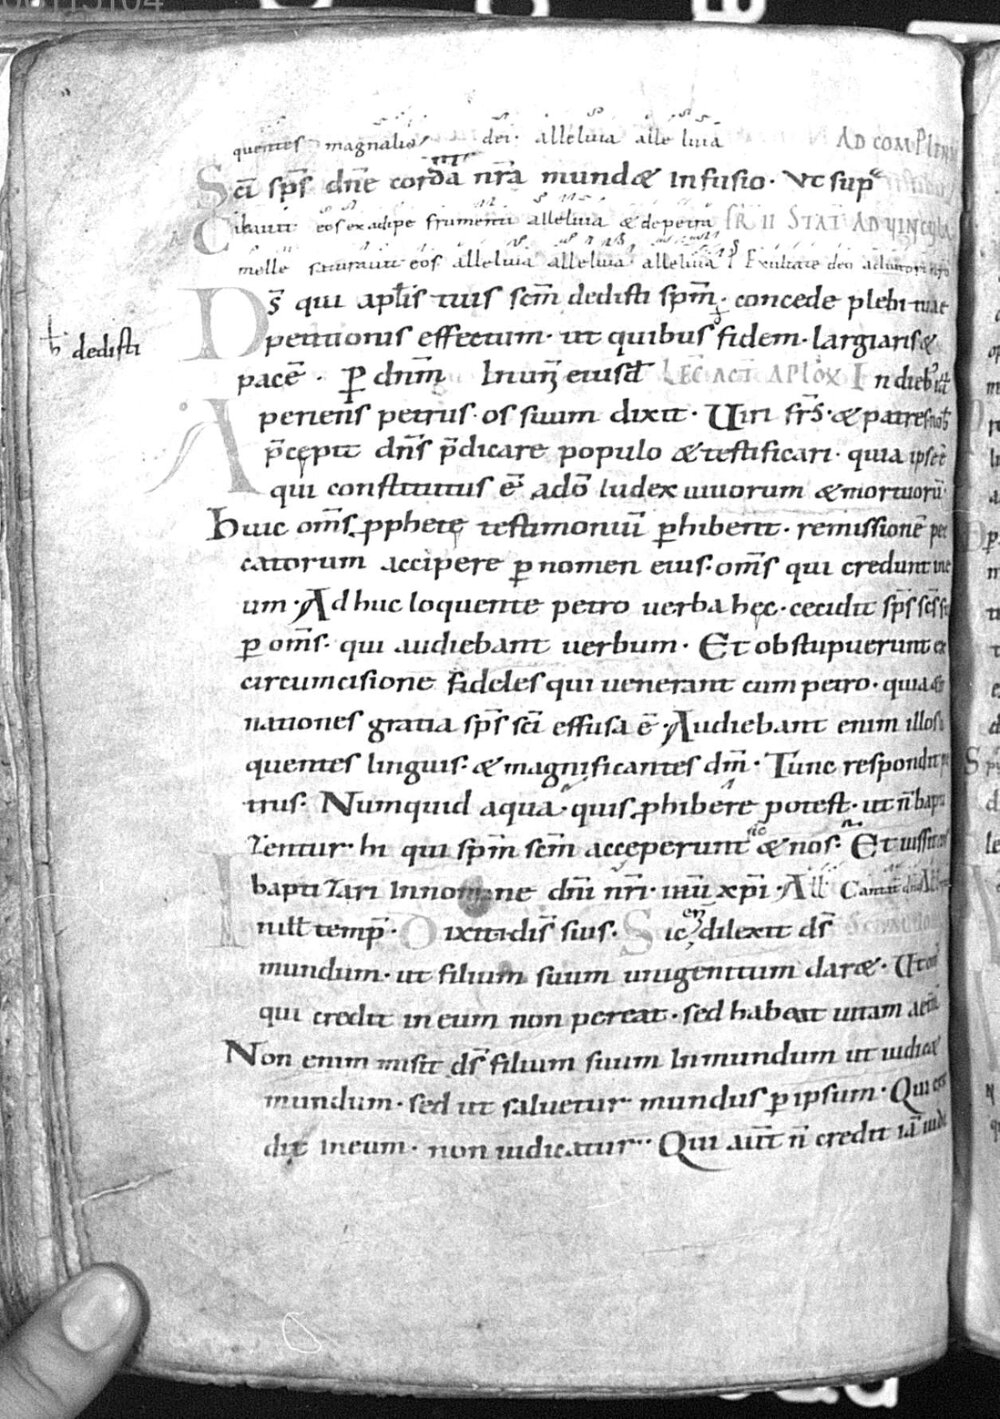 quentes magnalia dei. alleluia alleluia AD COMPLEN
Sc̄i sp̄s dn̄e corda nr̄a mundæ infusio. Vt sup
Cibauit eos ex adipe frumenti alleluia & de petra FR II STAT AD VINCULA
melle saturauit eos alleluia alleluia alleluia Ps Exultate deo adiutori nr̄o
Ds̄ qui aplīs tuis sc̄m dedisti sp̄m. concede plebi tuae
petitionis effectum. ut quibus fidem. largiaris &
ħ dedisti
pacē. ꝑ dnm̄ In unit̄ eiusd̄ LEC ACT APLOX In dieb' ill̄
Aperiens petrus. os suum dixit. Uiri fr̄s. & patres nob̄
p̄cepit dn̄s p̄dicare populo & testificari. quia ipse ē
qui constitutus ē. a dō Iudex uiuorum & mortuorū.
Huic oms̄ ꝓphetę testimoniū ꝑhibent. remissionē pec
catorum accipere ꝑ nomen eius. oms̄ qui credunt in e
um. Adhuc loquente petro uerba hęc. cecidit sp̄s sc̄s su
ꝑ oms̄. qui audiebant uerbum. Et obstupuerunt ex
circumcisione fideles qui uenerant cum petro. quia & in
nationes gratia sp̄s sc̄i effusa ē. Audiebant enim illos lo
quentes linguis. & magnificantes dm̄. Tunc respondit pe
trus. Numquid aqua. quis ꝓhibere potest. ut n̄ bapti
zentur. hi qui sp̄m sc̄m acceperunt sic & nos. Et iussit eos
baptizari In nomine dn̄i nr̄i. ihū xp̄i. All
In ill̄ temp̄. Dixit ih̄s dis̄ siis. Sic enī dilexit ds̄
mundum. ut filium suum unigenitum daræ. Ut om̄
qui credit in eum non pereat. sed habeat uitam aet̄n
Non enim misit ds̄ filium suum In mundum ut iudicæ
mundum. sed ut saluetur mundus ꝑ ipsum. Qui cre
dit in eum. non iudicatur. Qui aut̄ n̄ credit iā iudi